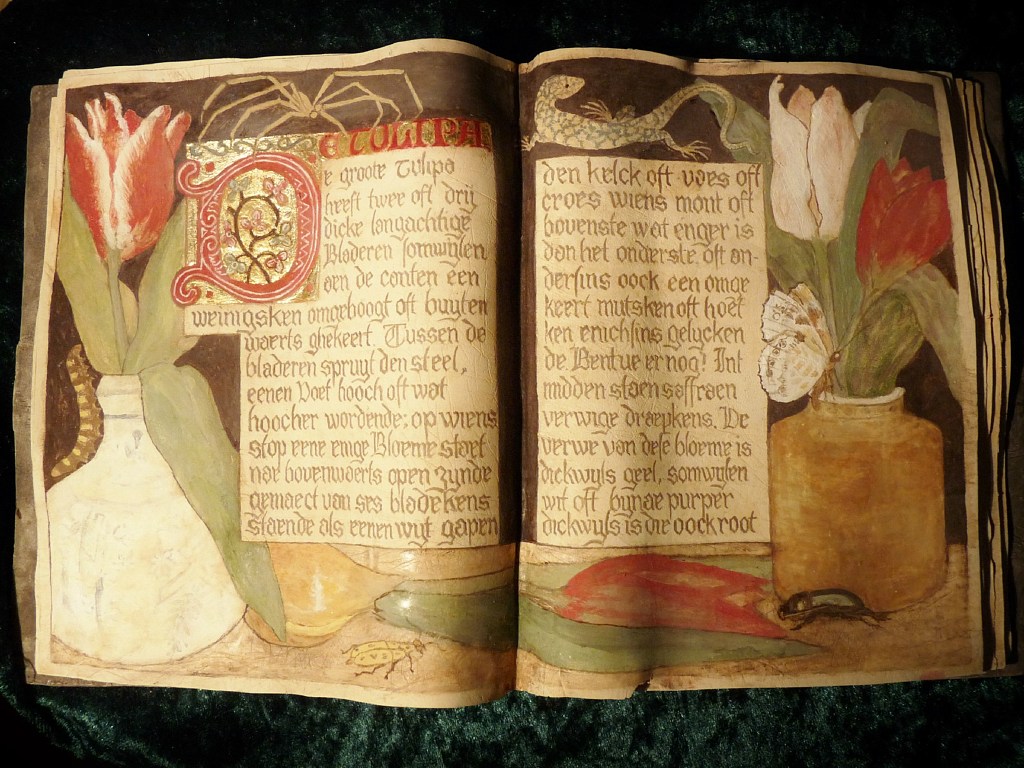 DE TULIPA
De groote Tulipa
heeft twee oft drij
dicke langachtige
Bladeren somwylen
aen de canten een
weinigsken omgeboogt oft buyten
waerts ghekeert. Tussen de
bladeren spruyt den steel,
eenen Voet hooch oft wat
hoocher wordende: op wiens
stop eene enige Bloeme staet
nae bovenwaerts open zynde
gemaect van ses bladekens
staende als eenen wyt gapen
den kelck oft voes oft
croes wiens mont oft
bovenste wat enger is
dan het onderste oft an-
dersins oock een omge
keert mutsken oft hoet
ken enichsins gelycken
de Bentue er nog! Int
midden staen saffraen
verwige draepkens. De
verwe van dese bloeme is
dickwyls geel, somwylen
wit oft bynae purper
dickwyls is die oock root